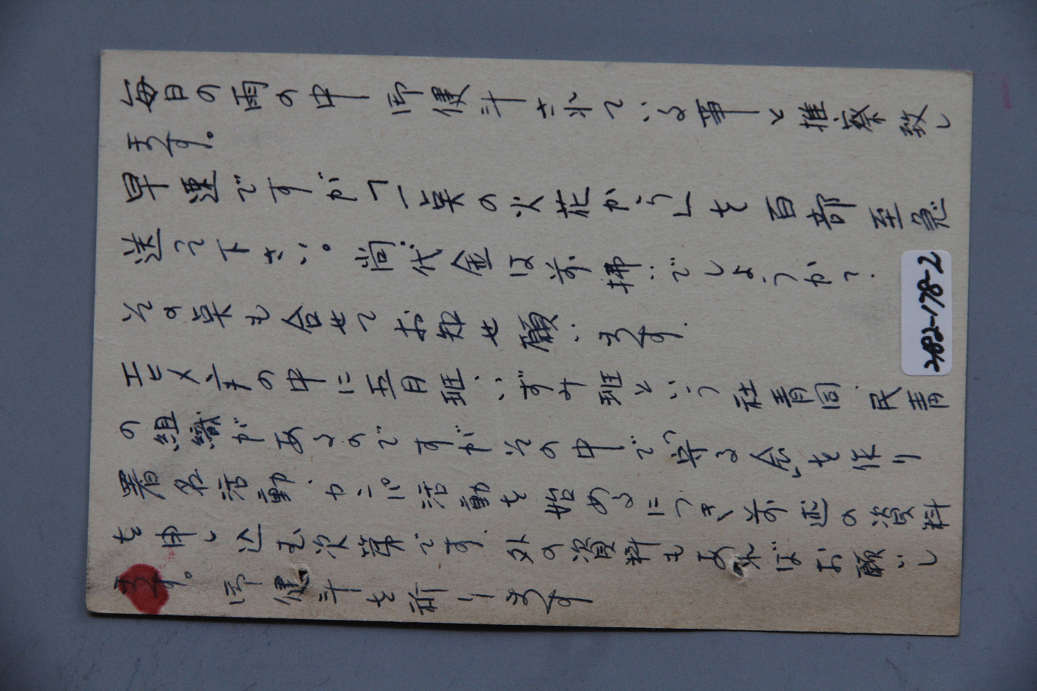 毎日の雨の中 御健斗されている事と推察致し
ます。
早速ですが「一点の火花から」を百部至急
送って下さい。尚代金は前拂いでしょうか?
その点も合せてお知せ願います.
エヒメ大の中に五月班、いずみ班という社青同.民青
の組織があるのですがその中で"守る会"を作り
署名活動.カンパ活動を始めるにつき、前述の資料
を申し込む次第です.外の資料もあればお願いし
ます。 御健斗を祈ります
282-178-2